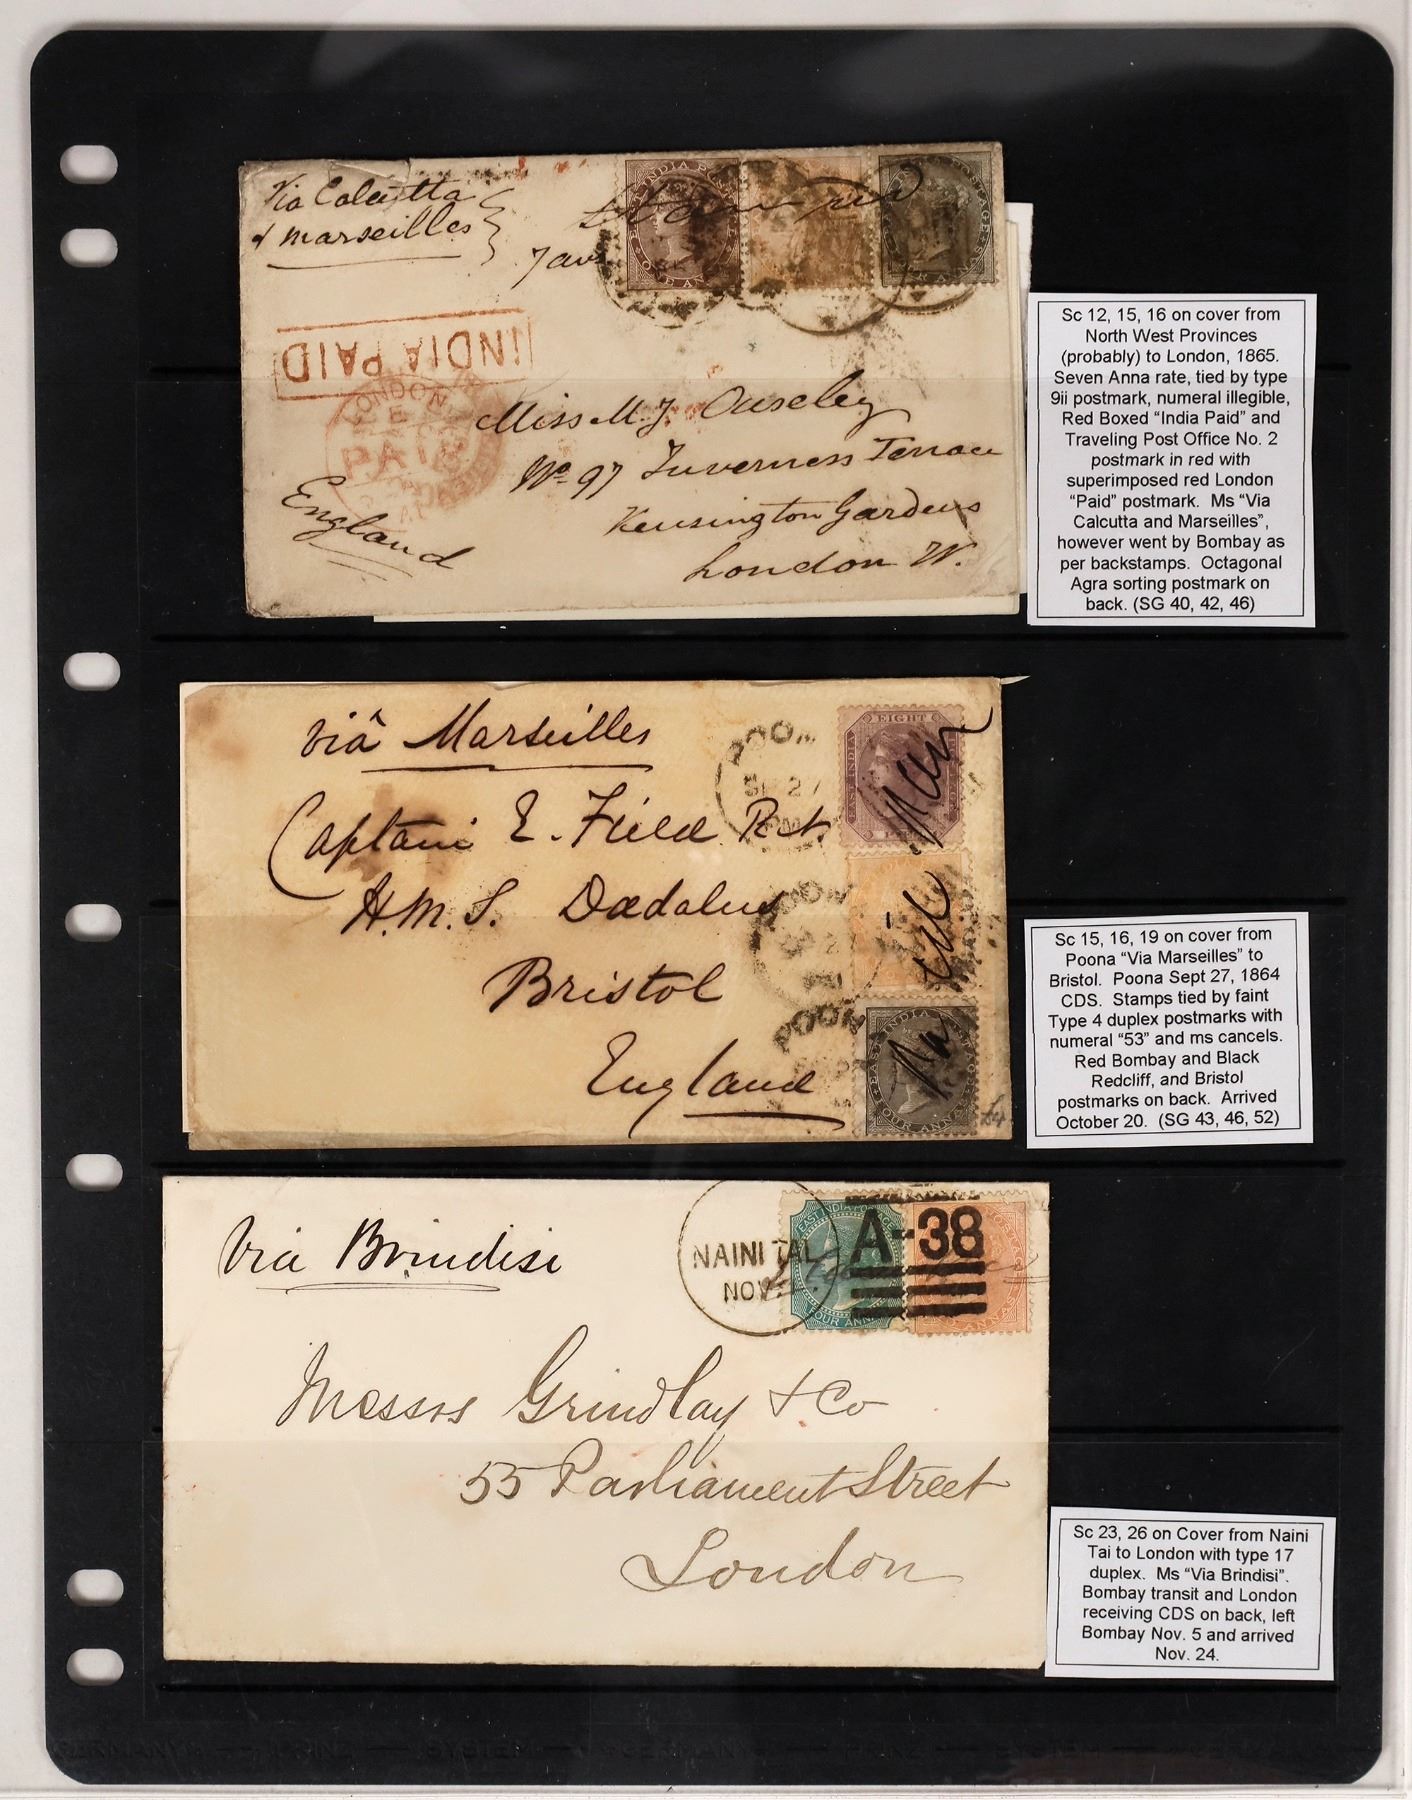 Via Calcutta
& Marseilles
INDIA PAID
LONDON
PAID
Miss M. J. Ouseley
No. 97 Inverness Terrace
Kensington Gardens
London W.
England
Sc 12, 15, 16 on cover from
North West Provinces
(probably) to London, 1865.
Seven Anna rate, tied by type
9ii postmark, numeral illegible,
Red Boxed “India Paid” and
Traveling Post Office No. 2
postmark in red with
superimposed red London
“Paid” postmark. Ms “Via
Calcutta and Marseilles”,
however went by Bombay as
per backstamps. Octagonal
Agra sorting postmark on
back. (SG 40, 42, 46)
viâ Marseilles
Captain E. Field R.A.
H.M.S. Dædalus
Bristol
England
POON
27
EIGHT
EAST INDIA
POON
POON
EAST INDIA POSTAGE
FOUR ANNAS
Sc 15, 16, 19 on cover from
Poona “Via Marseilles” to
Bristol. Poona Sept 27, 1864
CDS. Stamps tied by faint
Type 4 duplex postmarks with
numeral “53” and ms cancels.
Red Bombay and Black
Redcliff, and Bristol
postmarks on back. Arrived
October 20. (SG 43, 46, 52)
Via Brindisi
NAINI TAL
NOV
EAST INDIA POSTAGE
FOUR ANNAS
A-38
Messrs Grindlay & Co
55 Parliament Street
London
Sc 23, 26 on Cover from Naini
Tai to London with type 17
duplex. Ms “Via Brindisi”.
Bombay transit and London
receiving CDS on back, left
Bombay Nov. 5 and arrived
Nov. 24.